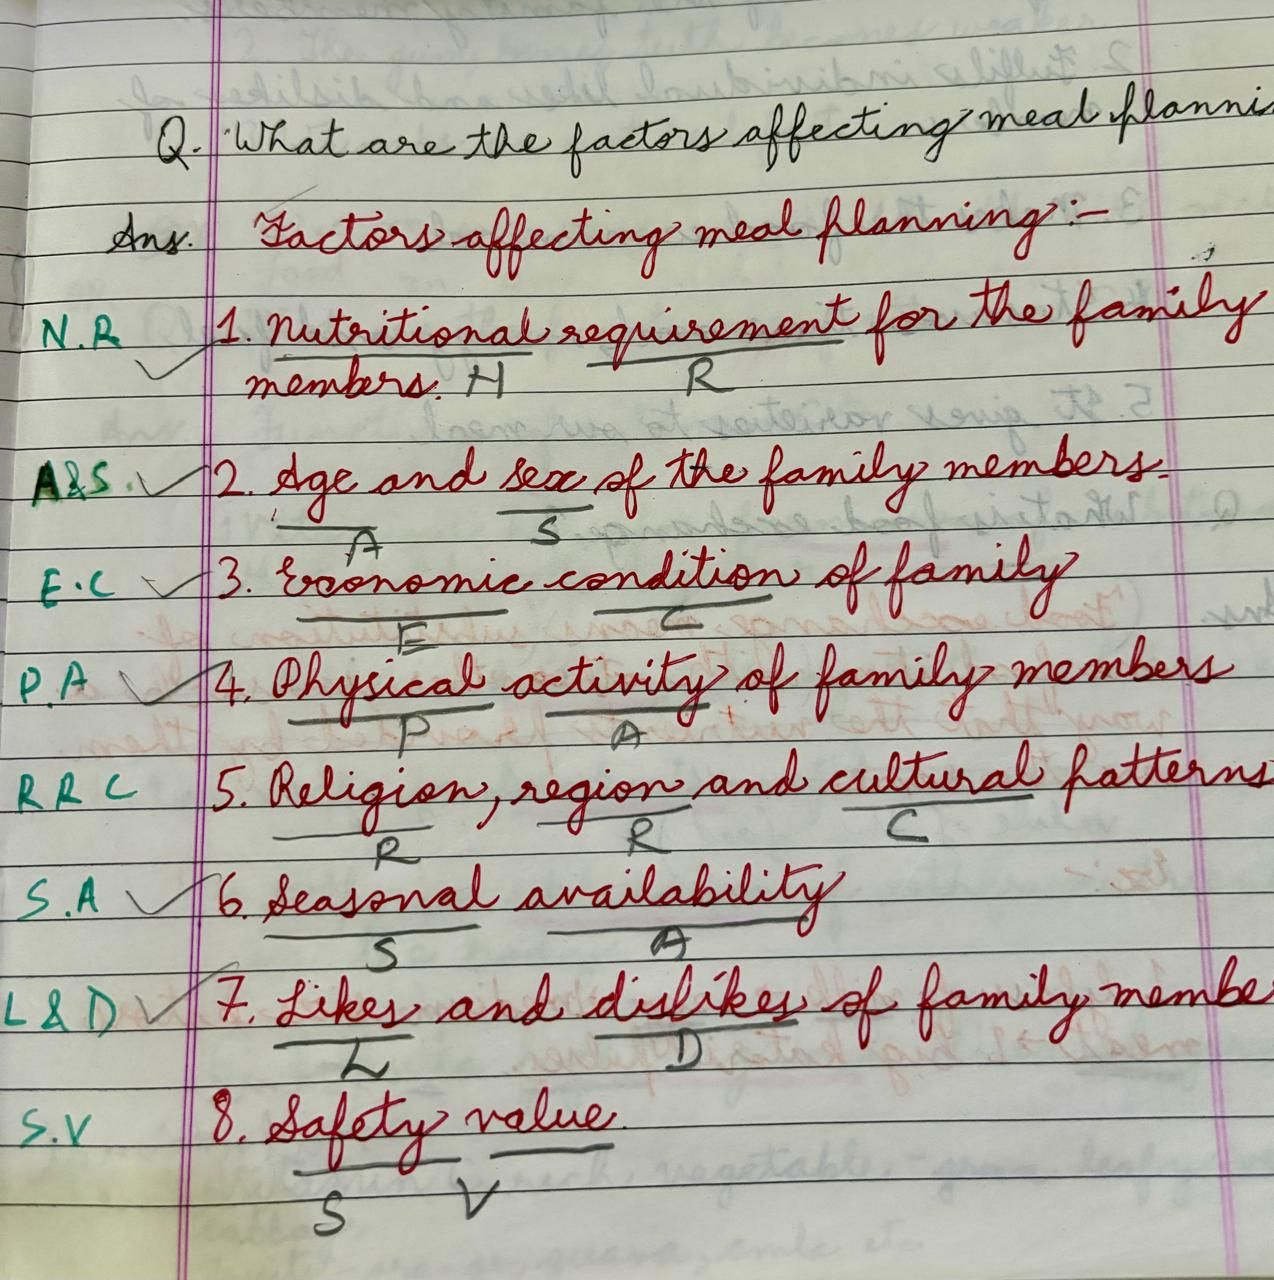 Q. What are the factors affecting meal planni
Ans. Factors affecting meal planning :-
N.R 1. Nutritional requirement for the family
members. H R
A&S. 2. Age and sex of the family members.
A S
E.C 3. Economic condition of family
E C
P.A 4. Physical activity of family members
P A
R R C 5. Religion, region and cultural patterns
R R C
S.A 6. Seasonal availability
S A
L & D 7. Likes and dislikes of family membe
L D
S.V 8. Safety value
S V